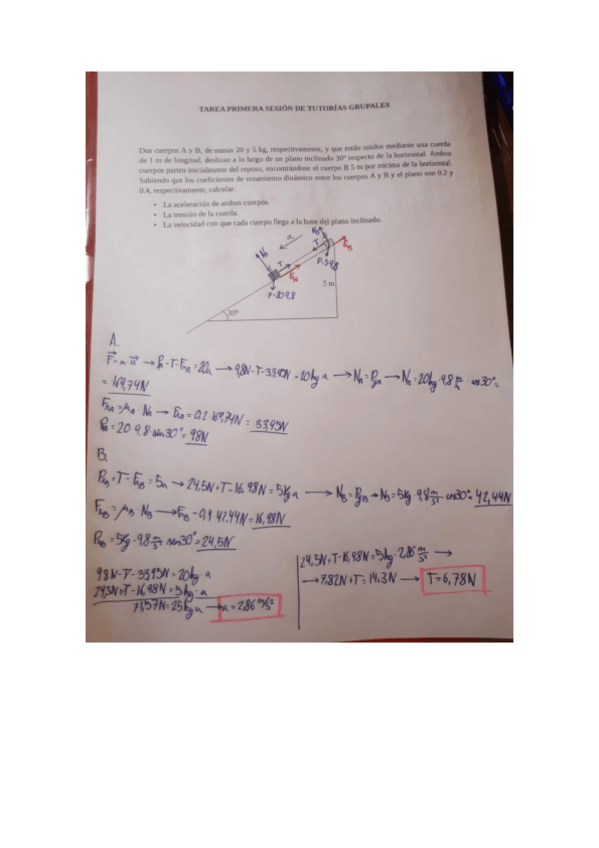 TAREA PRIMERA SESIÓN DE TUTORÍAS GRUPALES
Dos cuerpos A y B, de masas 20 y 5 kg, respectivamente, y que están unidos mediante una cuerda
de 1 m de longitud, deslizan a lo largo de un plano inclinado 30º respecto de la horizontal. Ambos
cuerpos parten inicialmente del reposo, encontrándose el cuerpo B 5 m por encima de la horizontal.
Sabiendo que los coeficientes de rozamiento dinámico entre los cuerpos A y B y el plano son 0.2 y
0.4, respectivamente, calcular:
• La aceleración de ambos cuerpos.
• La tensión de la cuerda.
• La velocidad con que cada cuerpo llega a la base del plano inclinado.
a
T
T
P=5·9.8
P=20·9.8
5 m
30º
A.
F = m·a → P_A - T - F_RA = 20a → 98N - T - 33,95N = 20kg a → N_A = P_yA → N_A = 20kg · 9,8 m/s² · cos30º =
= 169,74N
F_RA = μ_A · N_A → F_RA = 0,2 · 169,74N = 33,95N
P_A = 20 · 9,8 · sen30º = 98N
B.
P_xB + T - F_RB = 5a → 24,5N + T - 16,98N = 5kg a → N_B = P_yB → N_B = 5kg · 9,8 m/s² · cos30º = 42,44N
F_RB = μ_B · N_B → F_RB = 0,4 · 42,44N = 16,98N
P_xB = 5kg · 9,8 m/s² · sen30º = 24,5N
98N - T - 33,95N = 20kg · a
24,5N + T - 16,98N = 5kg · a
71,57N = 25kg a → a = 2,86 m/s²
24,5N + T - 16,98N = 5kg · 2,86 m/s² →
→ 7,82N + T = 14,3N → T = 6,78N